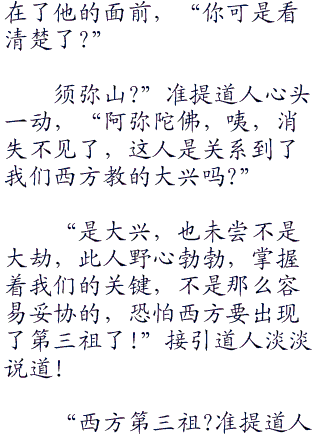 在了他的面前，“你可是看
清楚了？”
须弥山？”准提道人心头
一动，“阿弥陀佛，咦，消
失不见了，这人是关系到了
我们西方教的大兴吗？”
“是大兴，也未尝不是
大劫，此人野心勃勃，掌握
着我们的关键，不是那么容
易妥协的，恐怕西方要出现
了第三祖了！”接引道人淡淡
说道！
“西方第三祖？准提道人